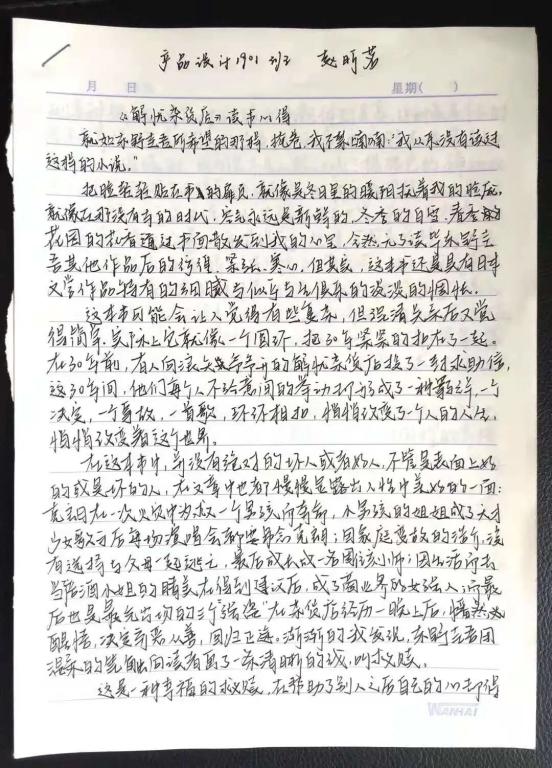 产品设计1901班 赵昕茗
月 日 星期( )
《解忧杂货店》读书心得
就如东野圭吾所希望的那样,掩卷,我不禁喃喃:“我从来没有读过
这样的小说。”
把脸轻轻贴在书的扉页,就像是冬日里的暖阳抚着我的脸庞。
就像在那没有的时代,空气永远是新鲜的,冬季的白雪,春季的
花园的花香通过书面散发到我的心里,全然无了读毕东野圭
吾其他作品后的惊悚、紧张、寒心,但其实,这本书还是具有日本
文学作品特有的细腻与似乎与生俱来的淡淡的惆怅。
这本书可能会让人觉得有些复杂,但理清关系后又觉
得简单,实际上它就像一个圆环,把30年紧紧的扣在了一起。
在30年前,有人向浪矢爷爷开的解忧杂货店投了一封求助信,
这30年间,他们每个人不经意间的举动打形成了一种羁绊,一个
决定,一个事故,一首歌,环环相扣,悄悄改变了个人的人生,
悄悄改变着这个世界。
在这本书中,并没有绝对的坏人或者好人,不管是表面上好
的或是坏的人,在文章中也都慢慢显露出人性中美好的一面:
克郎在一次火灾中为救一个男孩而牺牲,小男孩的姐姐成了天才
少女歌手后每场演唱会都要纪念克朗;因家庭变故的浩介,没
有选择与父母一起逃亡,最后成长成一名图该小师;因生活而去
当陪酒小姐的晴美在得到建议后,成了商业界的女强人;而最
后也是最先出场的三个“强盗”在杂货店经历一晚上后,幡然
醒悟,决定弃恶从善,回归正途。渐渐的我发现,东野圭吾用
温柔的笔触向读者画了一条清晰的线,叫救赎。
这是一种幸福的救赎,在帮助了别人之后自己的心却得
WANHAI